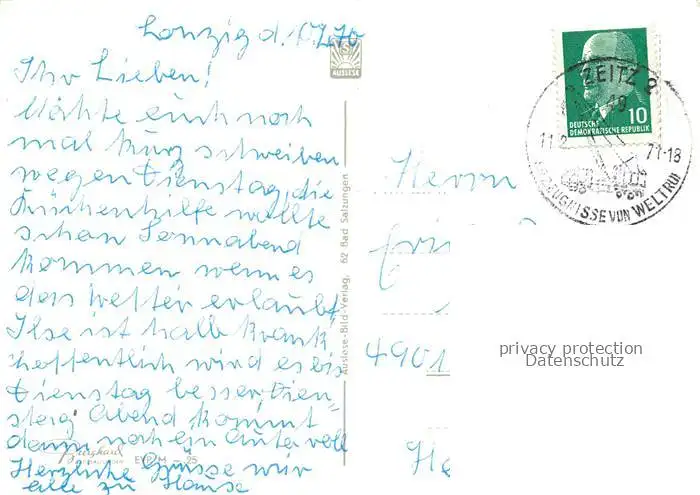 Lonzig d. 10.2.70
Ihr Lieben!
Möchte euch noch
mal kurz schreiben
wegen Dienstag, die
Küchenhilfe wollte
schon Sonnabend
kommen wenn es
das Wetter erlaubt,
Ilse ist halb krank
hoffentlich wird es bis
Dienstag besser, Dien=
stag Abend kommt
dann noch ein Auto voll
Herzliche Grüsse wir
alle zu Hause
AUSLESE
Auslese-Bild-Verlag, 62 Bad Salzungen
EVP M -,25
Herrn
4901
He
DEUTSCHE
DEMOKRATISCHE REPUBLIK
10
ZEITZ 2
19
11.2
71-18
ERZEUGNISSE VON WELTRUF
privacy protection
Datenschutz